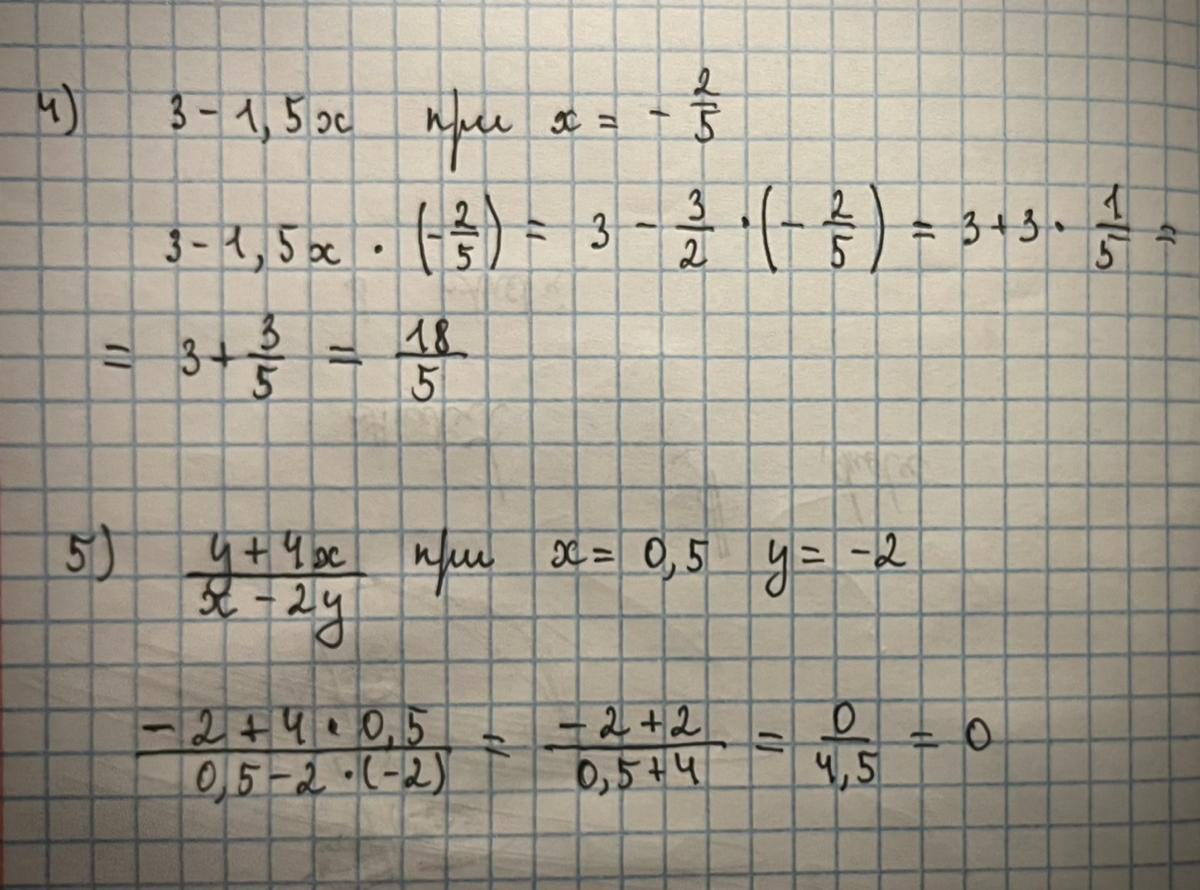 4) 3 - 1,5x при x = - 2/5
3 - 1,5x · (-2/5) = 3 - 3/2 · (- 2/5) = 3 + 3 · 1/5 =
= 3 + 3/5 = 18/5
5) (y + 4x)/(x - 2y) при x = 0,5 y = -2
(-2 + 4 · 0,5)/(0,5 - 2 · (-2)) = (-2 + 2)/(0,5 + 4) = 0/4,5 = 0